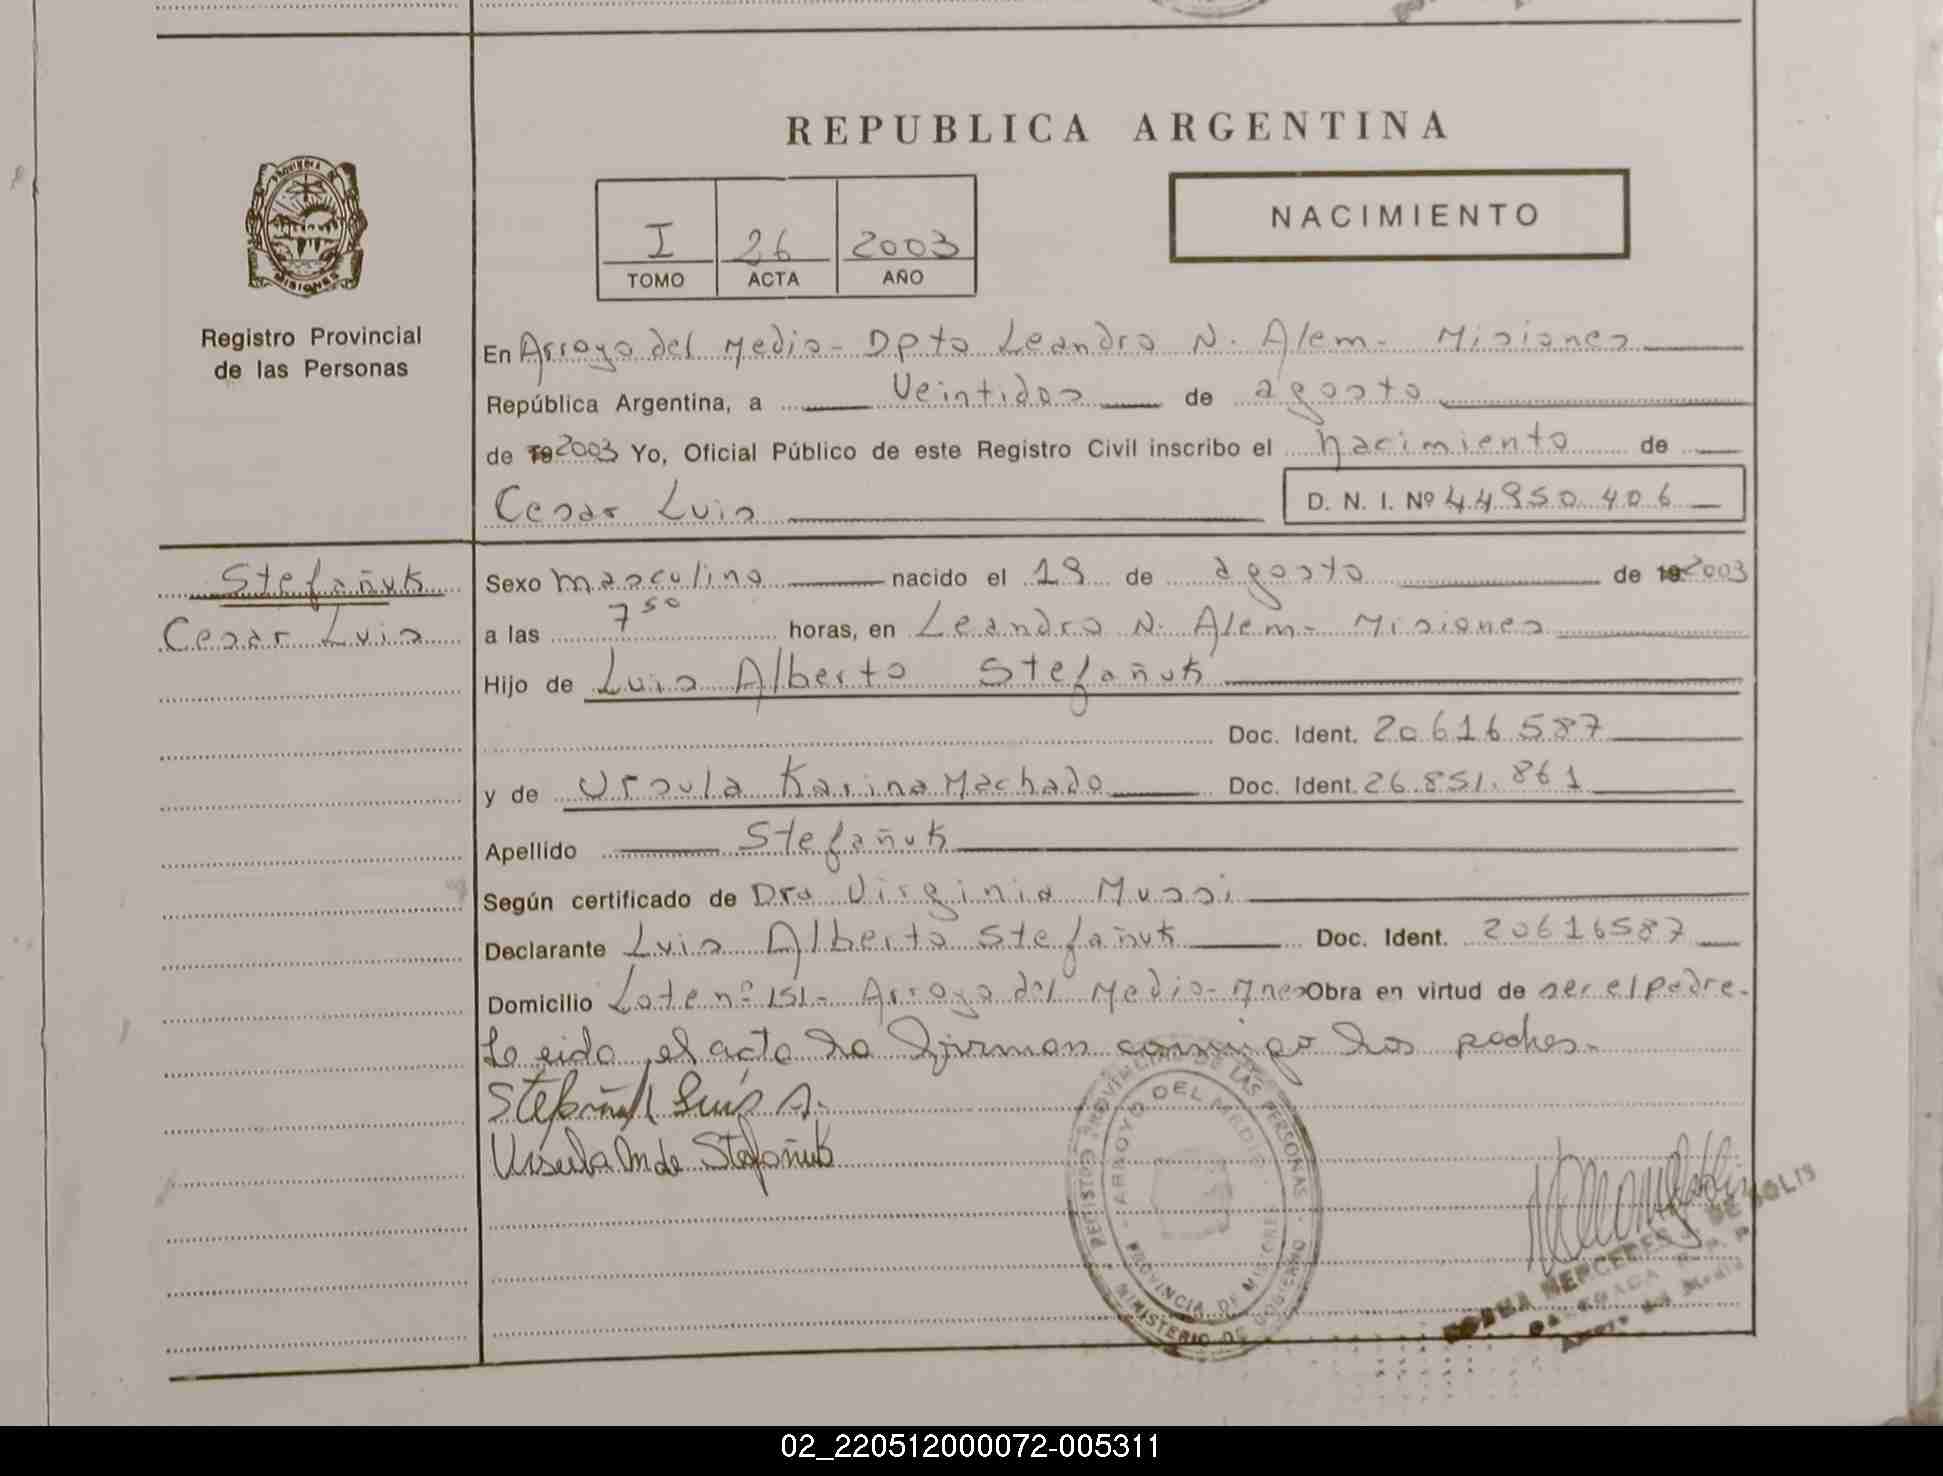 REPUBLICA ARGENTINA
NACIMIENTO
I 26 2003
TOMO ACTA AÑO
PROVINCIA DE
MISIONES
Registro Provincial
de las Personas
En Arroyo del Medio - Dpto Leandro N. Alem - Misiones
República Argentina, a Veintidos de agosto
de 19 2003 Yo, Oficial Público de este Registro Civil inscribo el nacimiento de
Cesar Luis D. N. I. Nº 44.950.406
Stefañuk
Cesar Luis
Sexo masculino nacido el 19 de agosto de 19 2003
a las 7 50 horas, en Leandro N. Alem - Misiones
Hijo de Luis Alberto Stefañuk
Doc. Ident. 20616587
y de Ursula Karina Machado Doc. Ident. 26.851.861
Apellido Stefañuk
Según certificado de Dra Virginia Mussi
Declarante Luis Alberto Stefañuk Doc. Ident. 20616587
Domicilio Lote nº 151 - Arroyo del Medio - Mnes Obra en virtud de ser el padre.
Leida el acta la firman conmigo los padres.
Stefañuk Luis A.
Ursula M de Stefañuk
REGISTRO PROVINCIAL DE LAS PERSONAS
MINISTERIO DE GOBIERNO
ARROYO DEL MEDIO
PROVINCIA DE MISIONES
NORMA MERCEDES DE SOLIS
02_220512000072-005311